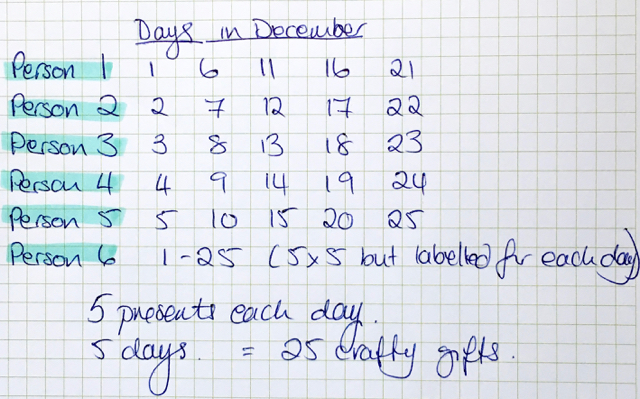 Days in December
Person 1 1 6 11 16 21
Person 2 2 7 12 17 22
Person 3 3 8 13 18 23
Person 4 4 9 14 19 24
Person 5 5 10 15 20 25
Person 6 1-25 (5x5 but labelled for each day)
5 presents each day.
5 days. = 25 crafty gifts.